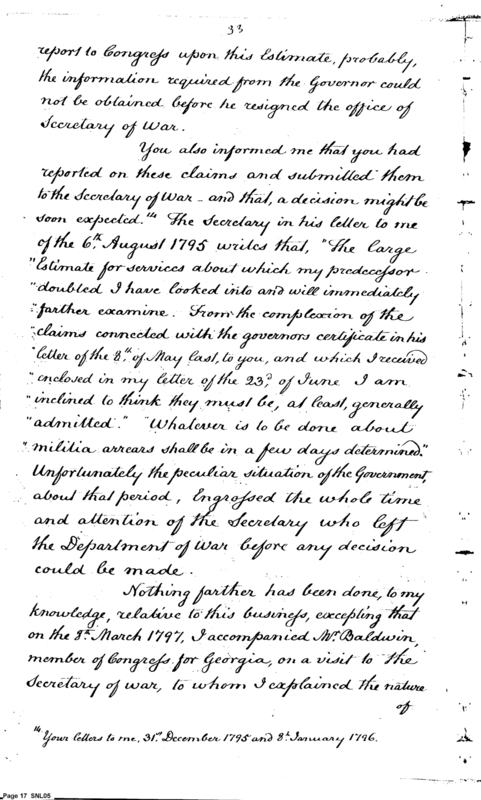 33
report to Congress upon this Estimate, probably,
the information required from the Governor could
not be obtained before he resigned the office of
Secretary of War.
You also informed me that you had
reported on these claims and submitted them
to the Secretary of War - and that, a decision might be
soon expected."14 The Secretary in his letter to me
of the 6th August 1795 writes that, "The large
"Estimate for services about which my predecessor
"doubted I have looked into and will immediately
"farther examine. From the complexion of the
"claims connected with the governors certificate in his
"letter of the 8th of May last, to you, and which I received
"enclosed in my letter of the 23d of June I am
"inclined to think they must be, at least, generally
"admitted." "Whatever is to be done about
"militia arrears shall be in a few days determined."
Unfortunately the peculiar situation of the Government,
about that period, Engrossed the whole time
and attention of the Secretary who left
the Department of War before any decision
could be made.
Nothing farther has been done, to my
knowledge, relative to this business, excepting that
on the 8th March 1797, I accompanied Mr Baldwin,
member of Congress for Georgia, on a visit to the
Secretary of war, to whom I explained the nature
of
14 Your letters to me, 31st December 1795 and 8th January 1796.
Page 17 SNL05